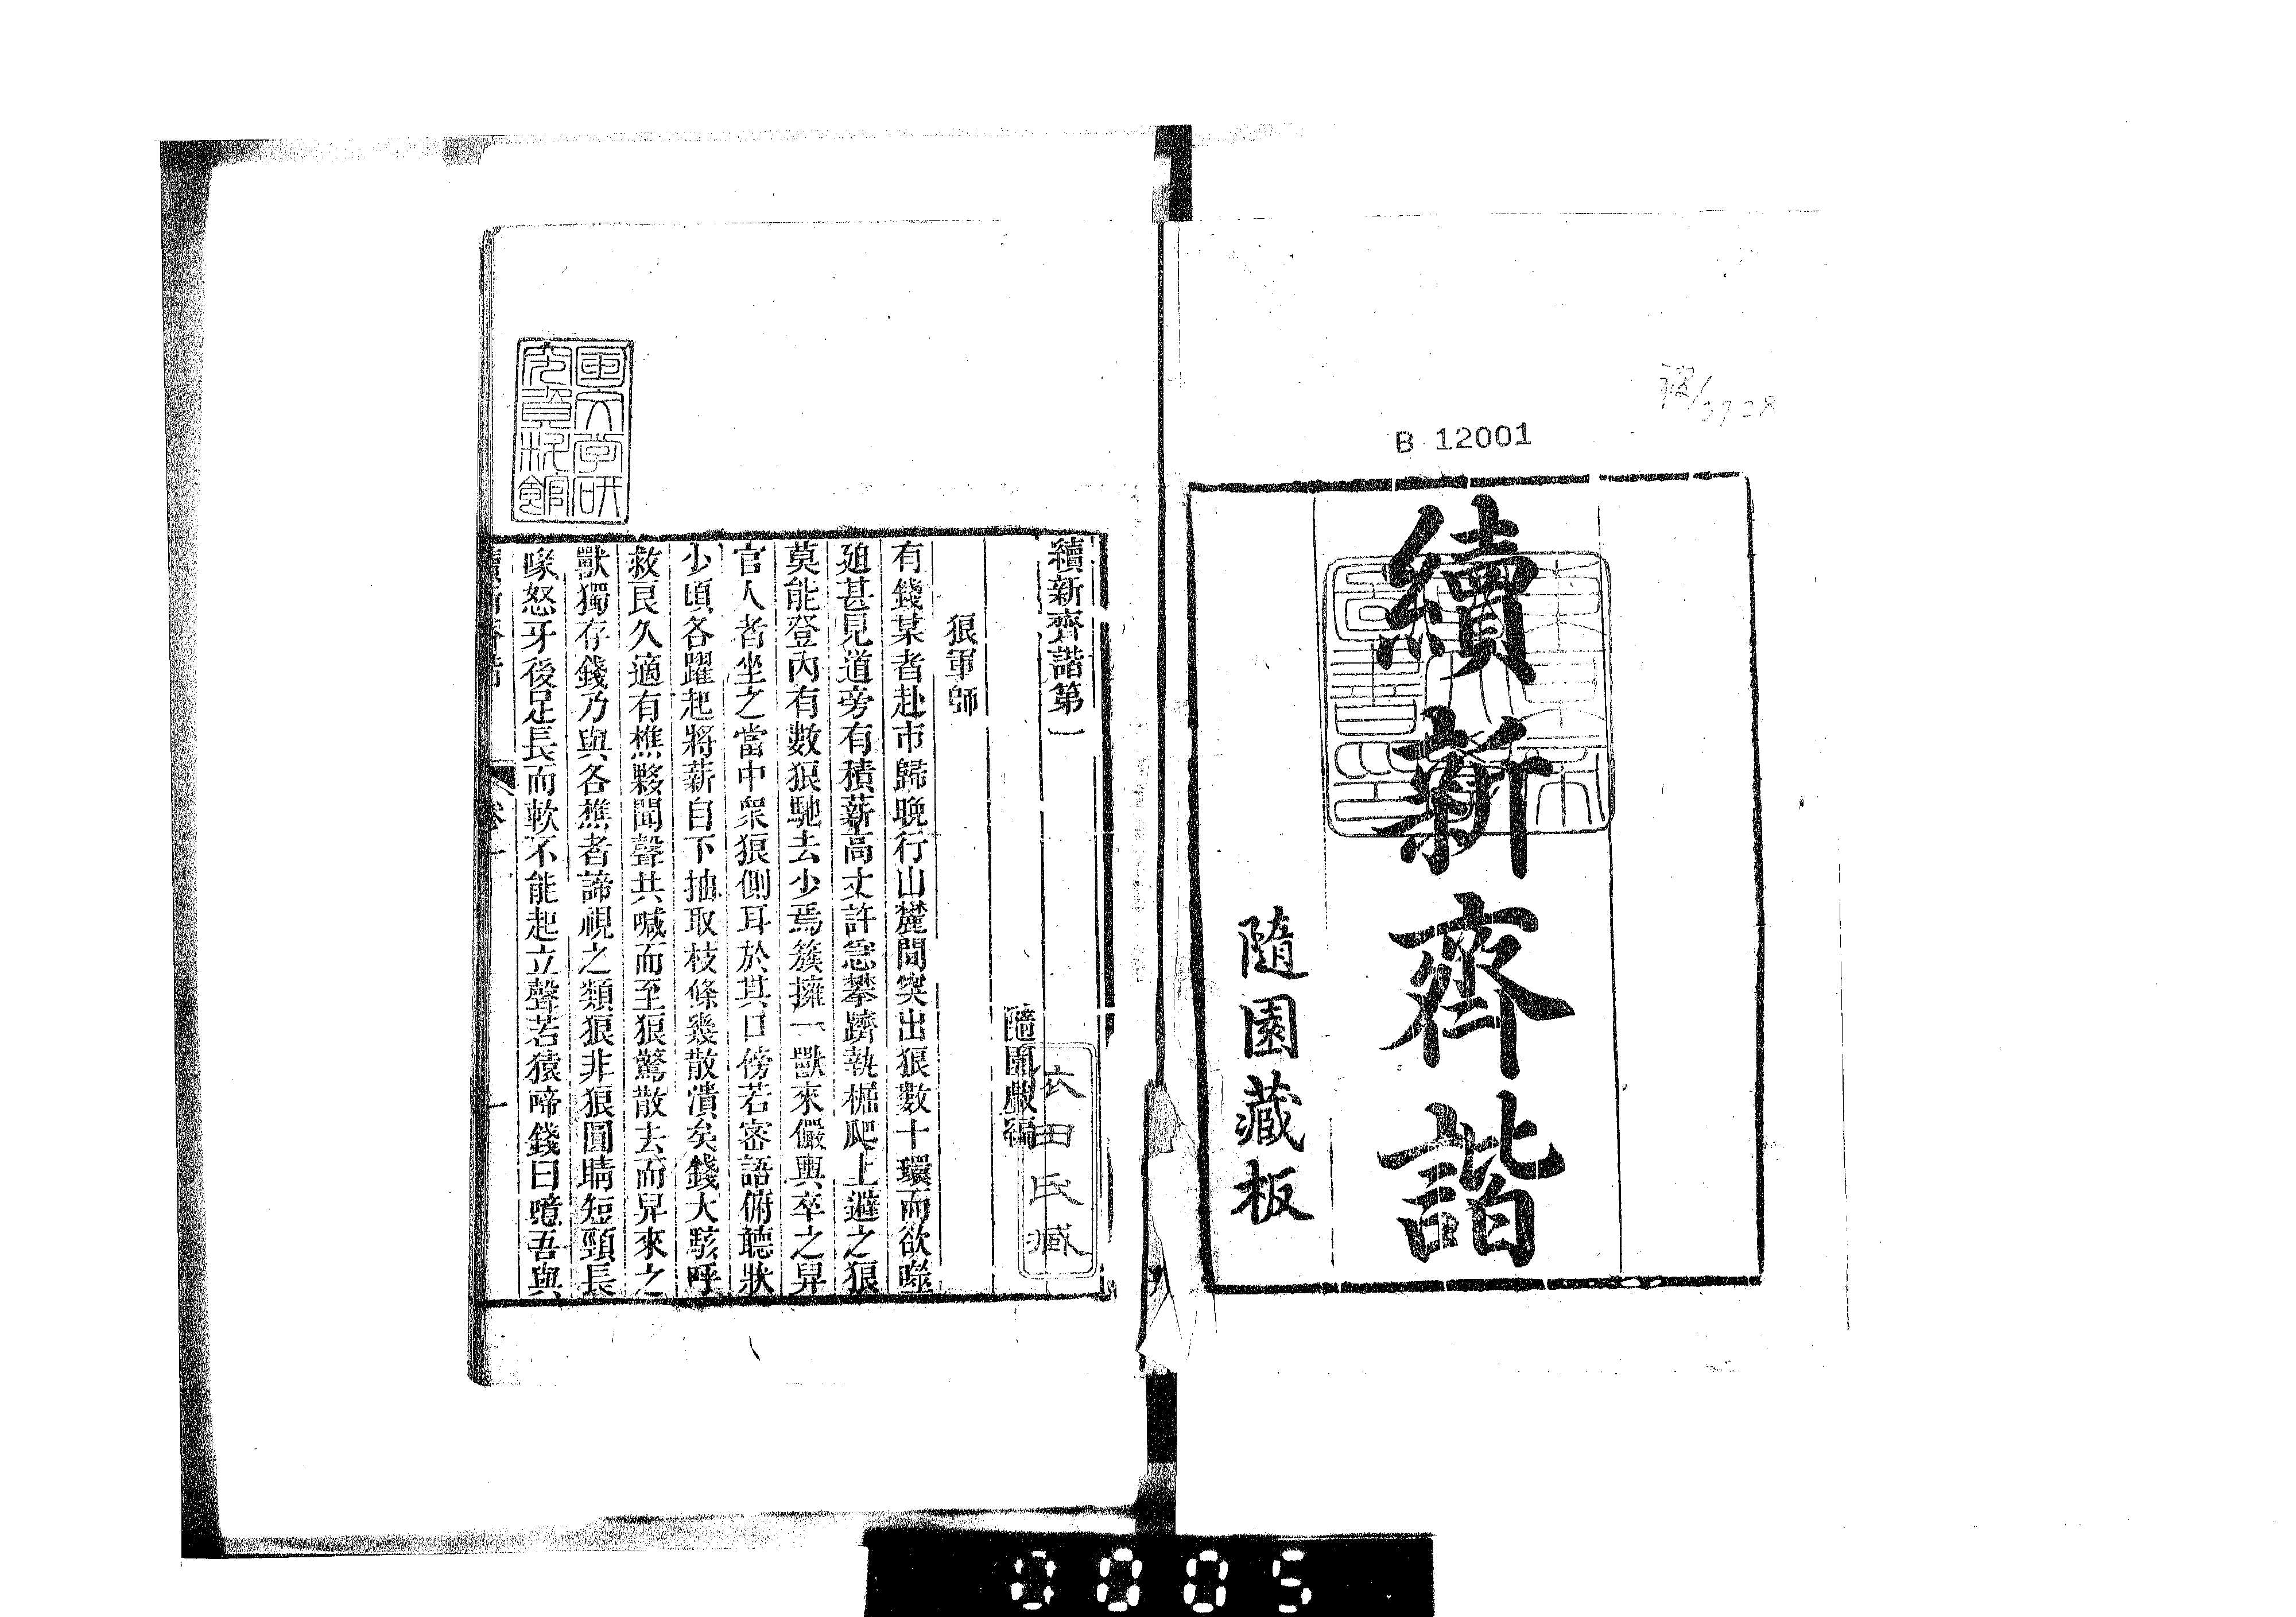 B 12001
續新齊諧
隨園藏板
續新齊諧第一
隨園戯編
狼軍師
有錢某者赴市歸晚行山麓間突出狼數十環而欲噬
廹甚見道旁有積薪高丈許急攀躋執㭾爬上避之狼
莫能登內有數狼馳去少焉簇擁一獸來儼輿卒之舁
官人者坐之當中衆狼側耳於其口傍若密語俯聽狀
少頃各躍起將薪自下抽取枝條幾散潰矣錢大駭呼
救良久適有樵夥聞聲共喊而至狼驚散去而舁來之
獸獨存錢乃與各樵者諦視之類狼非狼圓睛短頸長
喙怒牙後足長而軟不能起立聲若猿啼錢曰噫吾與
國文学研
究資料館
衣田氏藏
0005